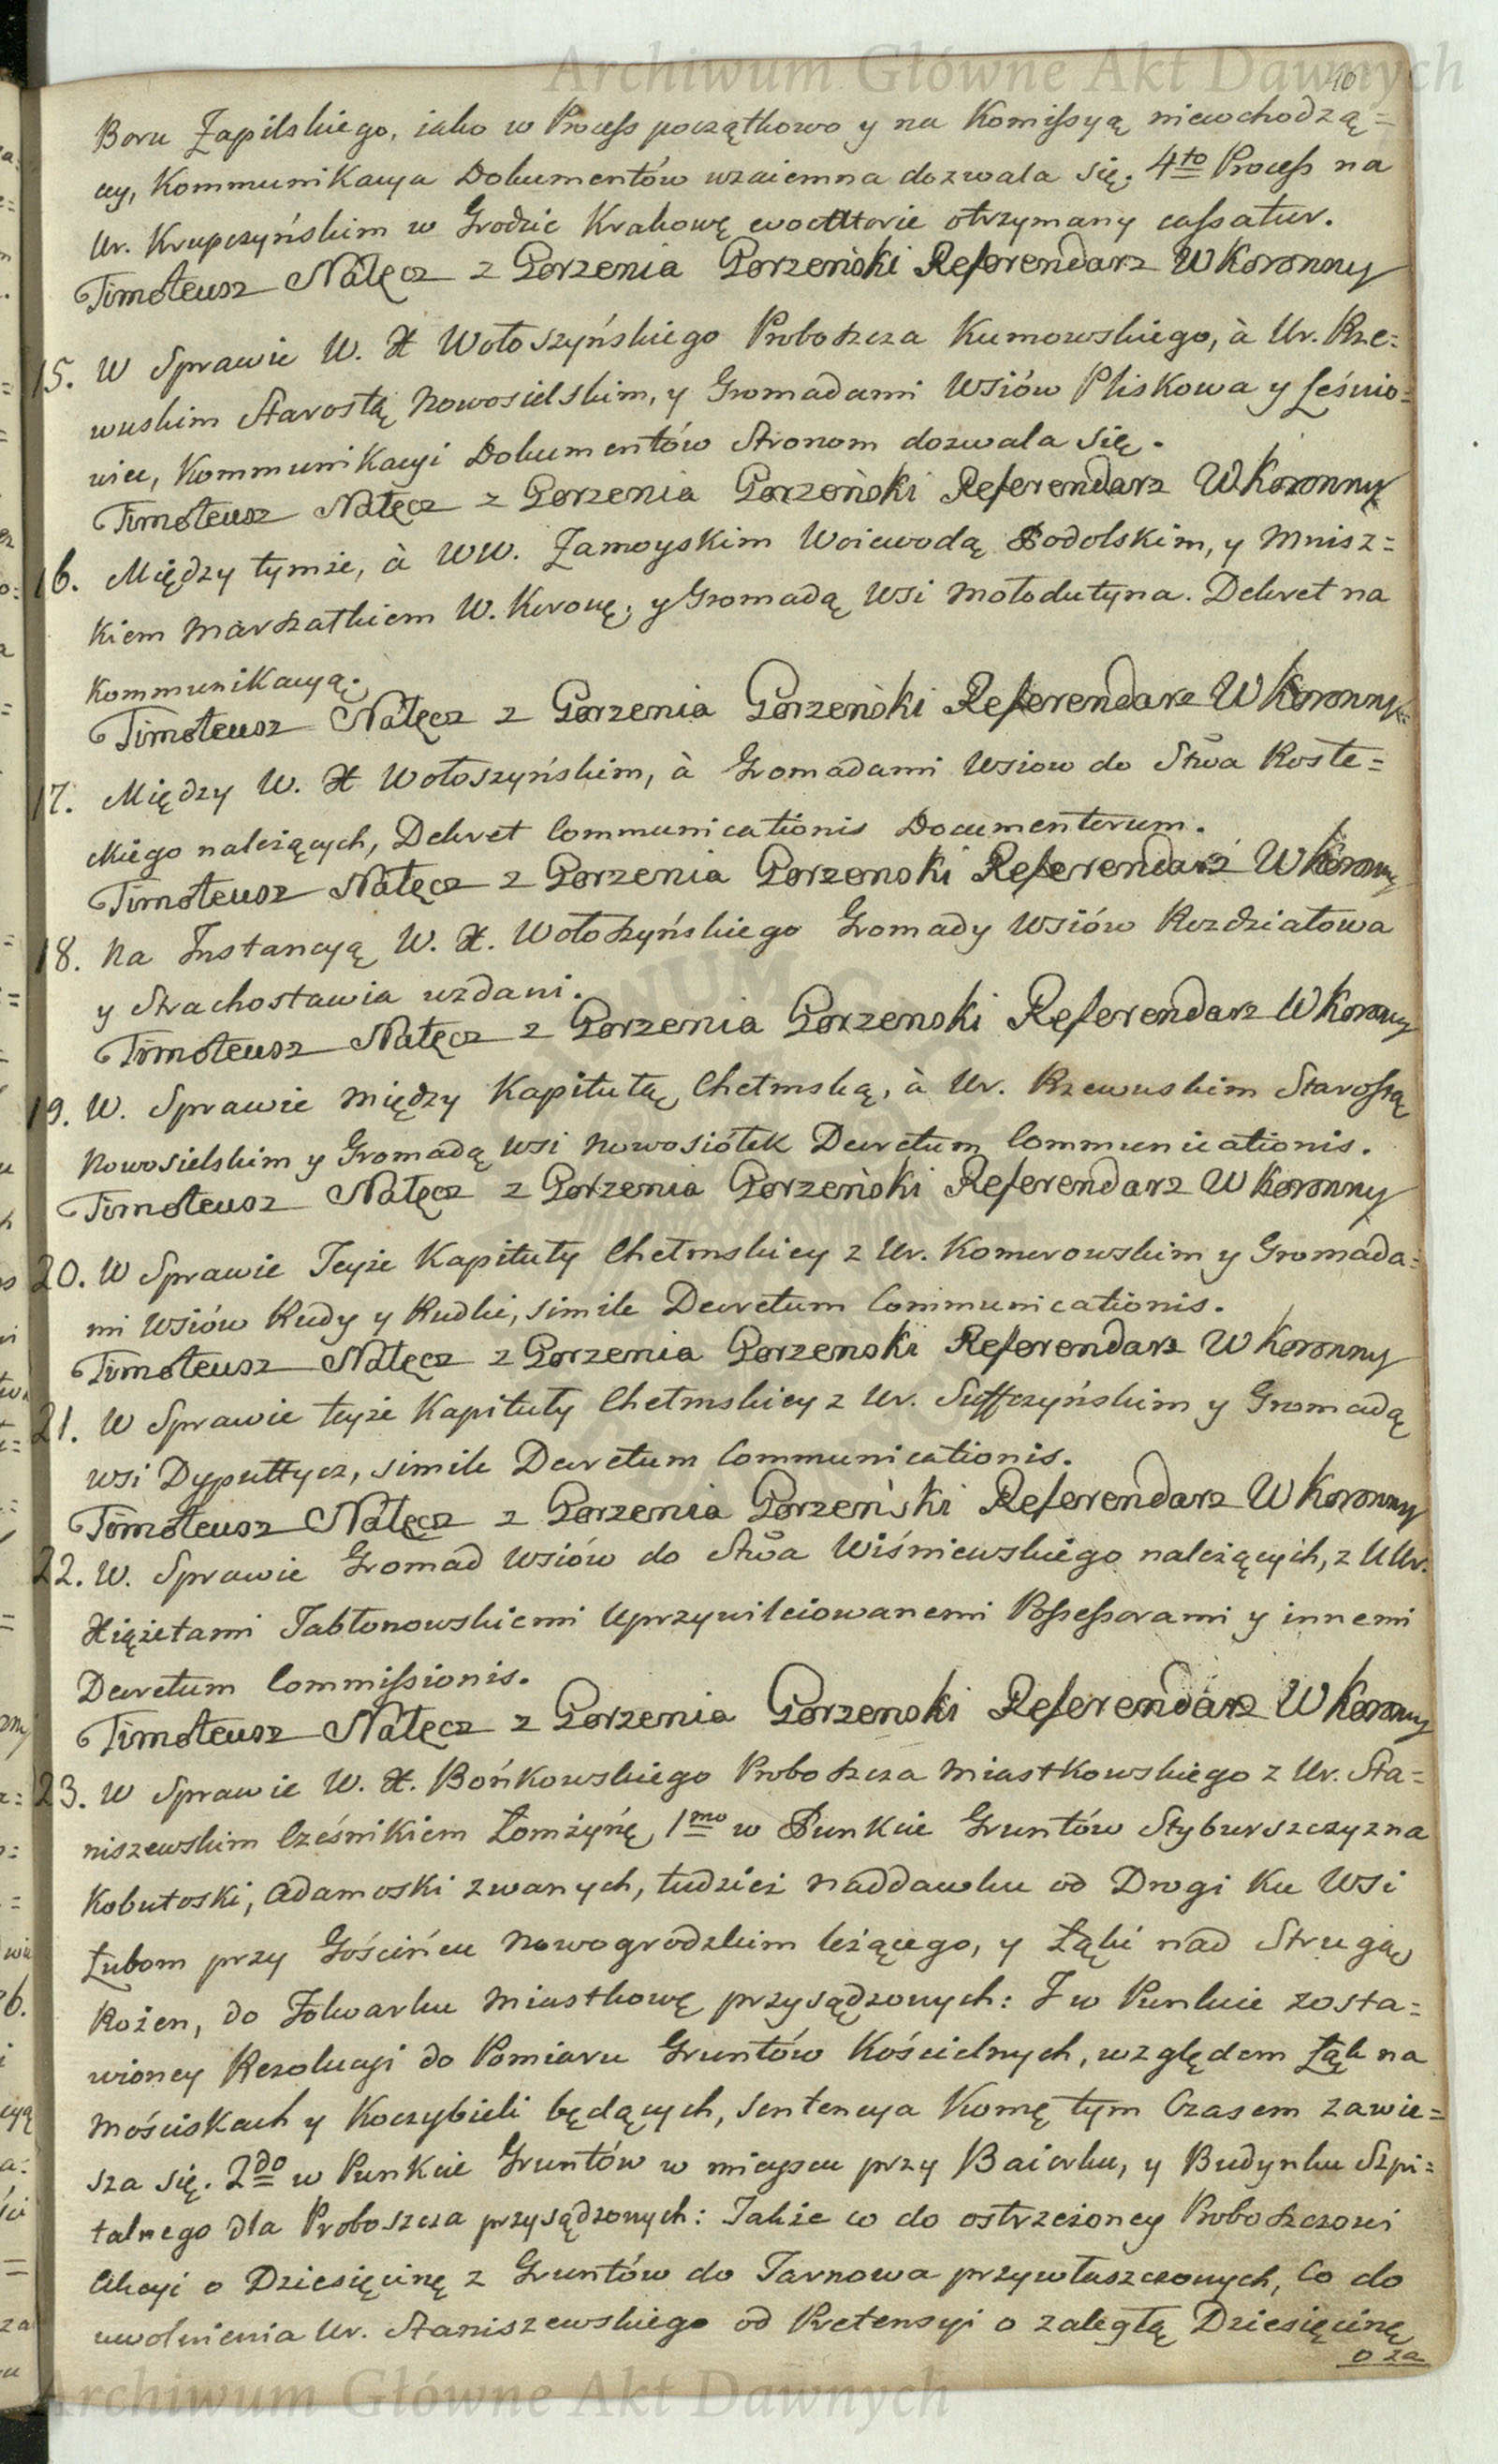 Archiwum Główne Akt Dawnych
10
Boru Zapilskiego, iako w Process początkowo y na Komissyą niewchodzą=
cey, Kommunikacya Dokumentów wzaiemna dozwala się. 4to Process na
Ur. Krupczyńskim w Grodzie Krakowę otrzymany cassatur.
Timoteusz Nałęcz z Gorzenia Gorzeński Referendarz W Koronny
15. W Sprawie W. X Wołoszyńskiego Proboszcza Kumowskiego, à Ur. Rze=
wuskim Starostą Nowosielskim, y Gromadami Wsiów Pliskowa y Leśnio=
wiec, Kommunikacyi Dokumentów Stronom dozwala się.
Timoteusz Nałęcz z Gorzenia Gorzeński Referendarz W Koronny
16. Między tymże, à WW. Zamoyskim Woiewodą Podolskim, y Mnisz=
kiem Marszałkiem W. Koronę, y Gromadą Wsi Mołodutyna. Dekret na
Kommunikacyą.
Timoteusz Nałęcz z Gorzenia Gorzeński Referendarz W Koronny
17. Między W. X Wołoszyńskim, à Gromadami Wsiow do Stwa Roste=
ckiego należących, Dekret Communicationis Documentorum.
Timoteusz Nałęcz z Gorzenia Gorzenski Referendarz W Koronny
18. Na Instancyą W. X. Wołoszyńskiego Gromady Wsiów Rozdziałowa
y Strachosławia wzdani.
Timoteusz Nałęcz z Gorzenia Gorzenski Referendarz W Koronny
19. W. Sprawie między Kapitułą Chełmską, à Ur. Rzewuskim Starostą
Nowosielskim y Gromadą Wsi Nowosiółek Decretum Communicationis.
Timoteusz Nałęcz z Gorzenia Gorzeński Referendarz W Koronny
20. W Sprawie Teyże Kapituły Chełmskiey z Ur. Komorowskim y Gromada=
mi Wsiów Rudy y Rudki, simile Decretum Communicationis.
Timoteusz Nałęcz z Gorzenia Gorzenski Referendarz W Koronny
21. W Sprawie teyże Kapituły Chełmskiey z Ur. Suffczyńskim y Gromadą
wsi Dypułtycz, simile Decretum Communicationis.
Timoteusz Nałęcz z Gorzenia Gorzeński Referendarz W Koronny
22. W. Sprawie Gromad Wsiów do Stwa Wiśniewskiego należących, z UUr.
Xiążetami Jabłonowskiemi Uprzywileiowanemi Possessorami y innemi
Decretum Commissionis.
Timoteusz Nałęcz z Gorzenia Gorzenski Referendarz W Koronny
23. W Sprawie W. X. Bońkowskiego Proboszcza Miastkowskiego z Ur. Sta=
niszewskim Cześnikiem Łomżyńę, 1mo w Punkcie Gruntów Styburszczyzna
Kobutoski, Adamoski zwanych, tudzież naddawku od Drogi Ku Wsi
Łubom przy Gościńcu Nowogrodzkim leżącego, y Łąki nad Strugą
Rożen, do Folwarku Miastkowę przysądzonych: J w Punkcie zosta=
wioney Rezolucyi do Pomiaru Gruntów Kościelnych, względem Łąk na
Mościskach y Koczybieli będących, Sentencya Komę tym Czasem zawie=
sza się. 2do w Punkcie Gruntów w mieyscu przy Baiorku, y Budynku Szpi=
talnego dla Proboszcza przysądzonych: Także co do ostrzeżoney Proboszczowi
Akcyi o Dziesięcinę z Gruntów do Tarnowa przywłaszczonych, Co do
uwolnienia Ur. Staniszewskiego od Pretensyi o zaległą Dziesięcinę
o za
Archiwum Główne Akt Dawnych